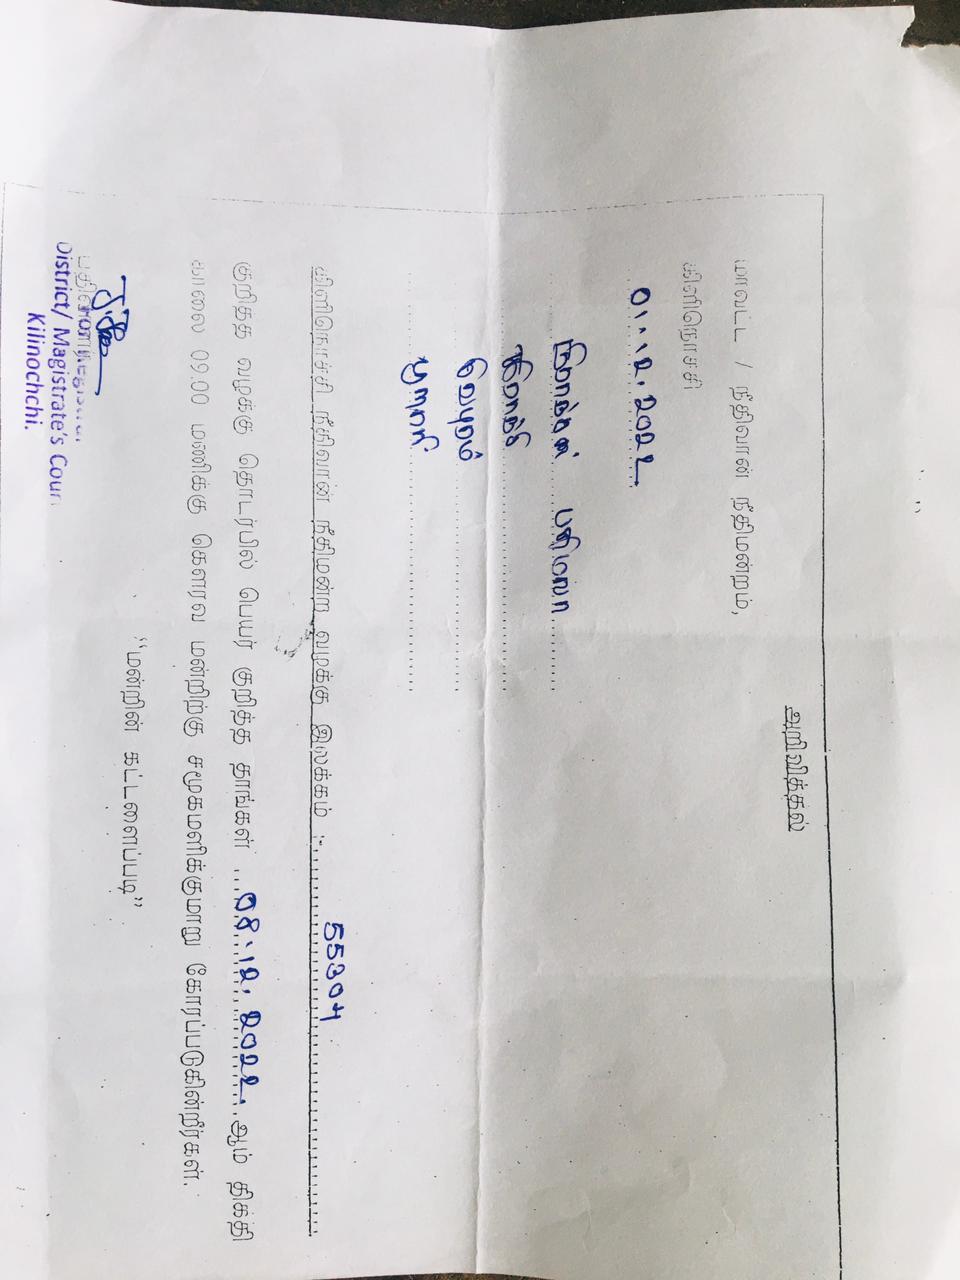 அறிவித்தல்
மாவட்ட / நீதிவான் நீதிமன்றம்,
கிளிநொச்சி
01.12.2022
பூநகரி
கிளிநொச்சி நீதிவான் நீதிமன்ற வழக்கு இலக்கம் :- 55304
குறித்த வழக்கு தொடர்பில் பெயர் குறித்த தாங்கள் 08.12.2022 ஆம் திகதி
காலை 09.00 மணிக்கு கௌரவ மன்றிற்கு சமூகமளிக்குமாறு கோரப்படுகின்றீர்கள்.
“மன்றின் கட்டளைப்படி”
பதிவாளர்/Registrar
District/ Magistrate's Cour
Kilinochchi.